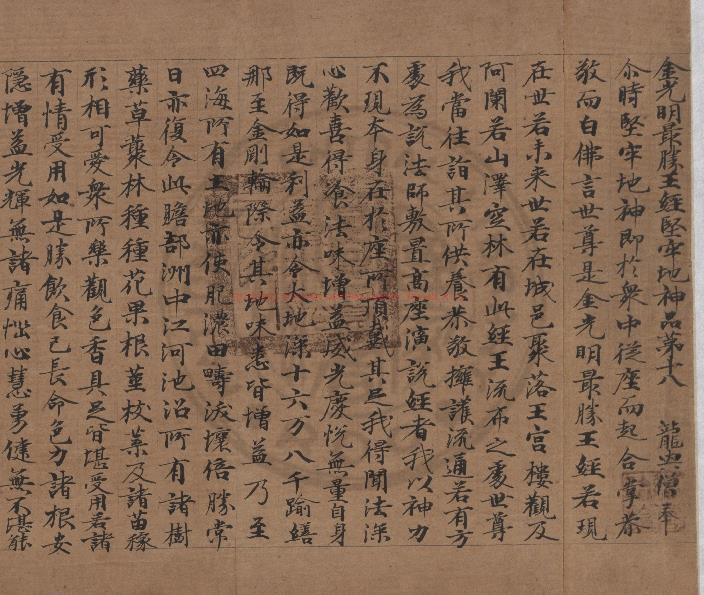 金光明最勝王經堅牢地神品第十八 龍興僧奉
尒時堅牢地神即於衆中從座而起合掌恭
敬而白佛言世尊是金光明最勝王經若現
在世若未來世若在城邑聚落王宮樓觀及
阿蘭若山澤空林有此經王流布之處世尊
我當往詣其所供養恭敬擁護流通若有方
處為說法師敷置高座演說經者我以神力
不現本身在於座所頂戴其足我得聞法深
心歡喜得飡法味增益威光慶悅無量自身
既得如是利益亦令大地深十六万八千踰繕
那至金剛輪際令其地味悉皆增益乃至
四海所有土地亦使肥濃田疇沃壤倍勝常
日亦復令此贍部洲中江河池沼所有諸樹
藥草藂林種種花果根莖枝葉及諸苗稼
形相可愛衆所樂觀色香具足皆堪受用若諸
有情受用如是勝飲食已長命色力諸根安
隱增益光輝無諸痛惱心慧勇健無不堪能